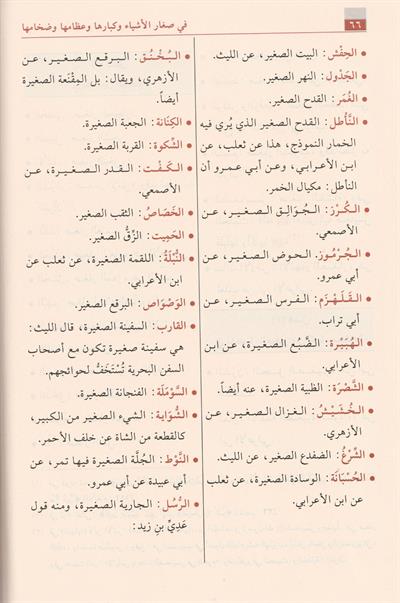 ٦٦
في صغار الأشياء وكبارها وعظامها وضخامها
• الحِفْش: البيت الصغير، عن الليث.
• الجَدْول: النهر الصغير.
• الغُمَر: القدح الصغير.
• النَّأطل: القدح الصغير الذي يُري فيه
الخمار النموذج، هذا عن ثعلب، عن
ابن الأعرابي، وعن أبي عمرو أن
الناطل: مكيال الخمر.
• الكُرْز: الجُوَالِق الصغير، عن
الأصمعي.
• الجُرْموز: الحوض الصغير، عن
أبي عمرو.
• القَلْهَزَم: الفرس الصغير، عن
أبي تراب.
• الهُبَيْرة: الضَّبُع الصغيرة، عن ابن
الأعرابي.
• النَّصْرَة: الظبية الصغيرة، عنه أيضاً.
• الخُشَيْشُ: الغزال الصغير، عن
الأزهري.
• الشَّرْغُ: الضفدع الصغير، عن الليث.
• الحُسْبَانَة: الوسادة الصغيرة، عن ثعلب
عن ابن الأعرابي.
• البُخْنُق: البرقع الصغير، عن
الأزهري، ويقال: بل المِقْنَعة الصغيرة
أيضاً.
• الكِنَانَة: الجعبة الصغيرة.
• الشَّكوة: القربة الصغيرة.
• الكَفْت: القدر الصغيرة، عن
الأصمعي.
• الخَصَاصُ: الثقب الصغير.
• الحَمِيت: الزِّقُّ الصغير.
• النُّبْلَةُ: اللقمة الصغيرة، عن ثعلب عن
ابن الأعرابي.
• الوَصْوَاص: البرقع الصغير.
• القارب: السفينة الصغيرة، قال الليث:
هي سفينة صغيرة تكون مع أصحاب
السفن البحرية تُسْتَخَفُّ لحوائجهم.
• السَّوْمَلَة: الفنجانة الصغيرة.
• الشُّوَاية: الشيء الصغير من الكبير،
كالقطعة من الشاة عن خلف الأحمر.
• النَّوْط: الجُلَّة الصغيرة فيها تمر، عن
أبي عبيدة عن أبي عمرو.
• الرُّسُل: الجارية الصغيرة، ومنه قول
عَدِيّ بن زيد: